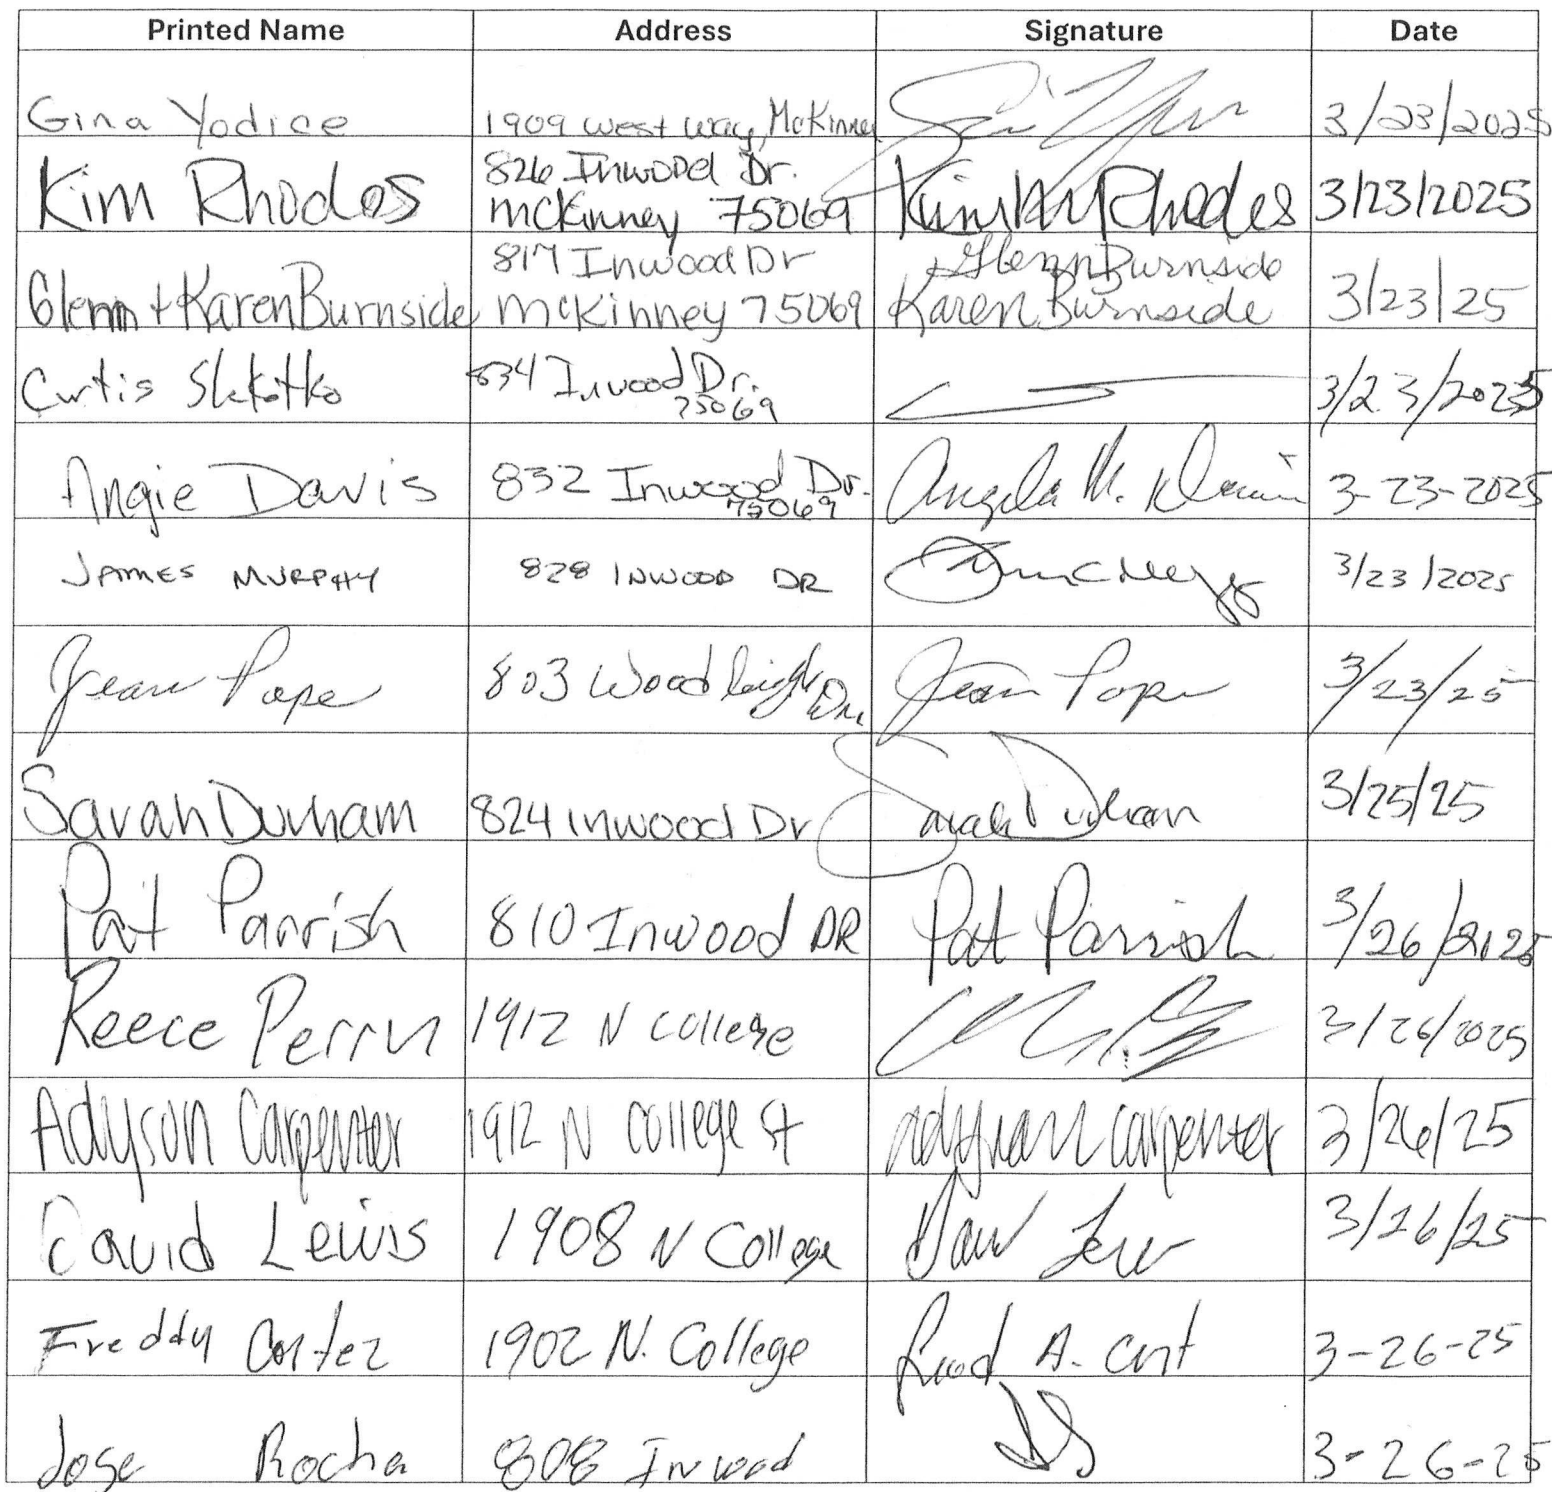 Printed Name Address Signature Date
Gina Yodice 1909 west way, McKinney 3/23/2025
Kim Rhodes 826 Inwood Dr. McKinney 75069 Kim M Rhodes 3/23/2025
Glenn + Karen Burnside 817 Inwood Dr McKinney 75069 Glenn Burnside Karen Burnside 3/23/25
Curtis 834 Inwood Dr. 75069 3/23/2025
Angie Davis 832 Inwood Dr. 75069 Angela M. Davis 3-23-2025
JAMES MURPHY 828 INWOOD DR 3/23/2025
Jean Pope 803 Woodleigh Dr. Jean Pope 3/23/25
Sarah Durham 824 Inwood Dr Sarah Durham 3/25/25
Pat Parrish 810 Inwood DR Pat Parrish 3/26/2025
Reece Perry 1912 N College 3/26/2025
Adyson Carpenter 1912 N College St Carpenter 3/26/25
David Lewis 1908 N College 3/26/25
Freddy Cortez 1902 N. College A. 3-26-25
Jose Rocha 808 Inwood 3-26-25